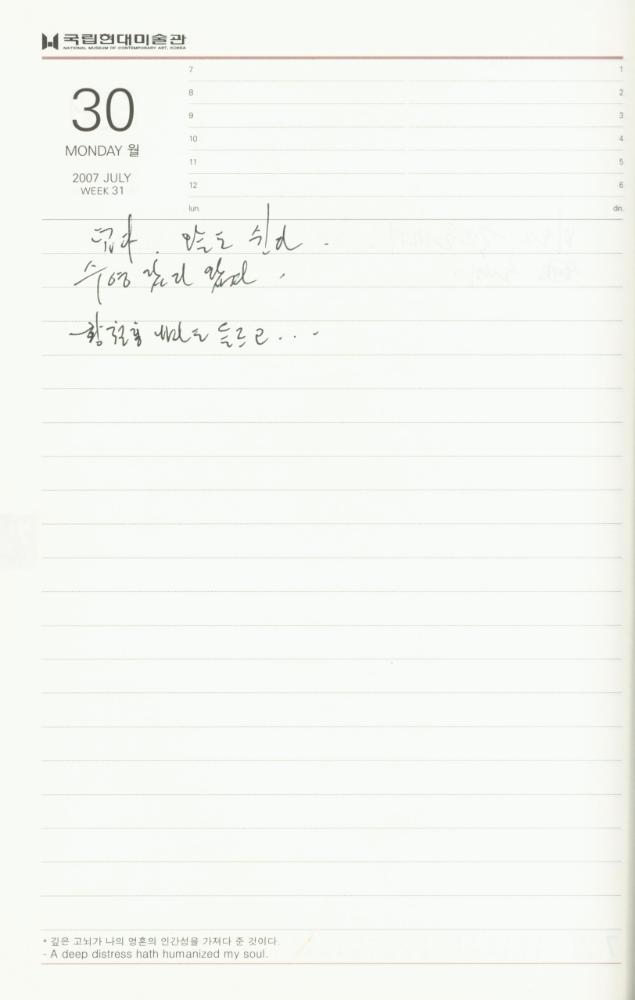 국립현대미술관
NATIONAL MUSEUM OF CONTEMPORARY ART, KOREA
30
MONDAY 월
2007 JULY
WEEK 31
7 1
8 2
9 3
10 4
11 5
12 6
lun. din.
덥다. 오늘도 쉰다.
수영 갔다 왔다.
들르고...
* 깊은 고뇌가 나의 영혼의 인간성을 가져다 준 것이다.
- A deep distress hath humanized my soul.